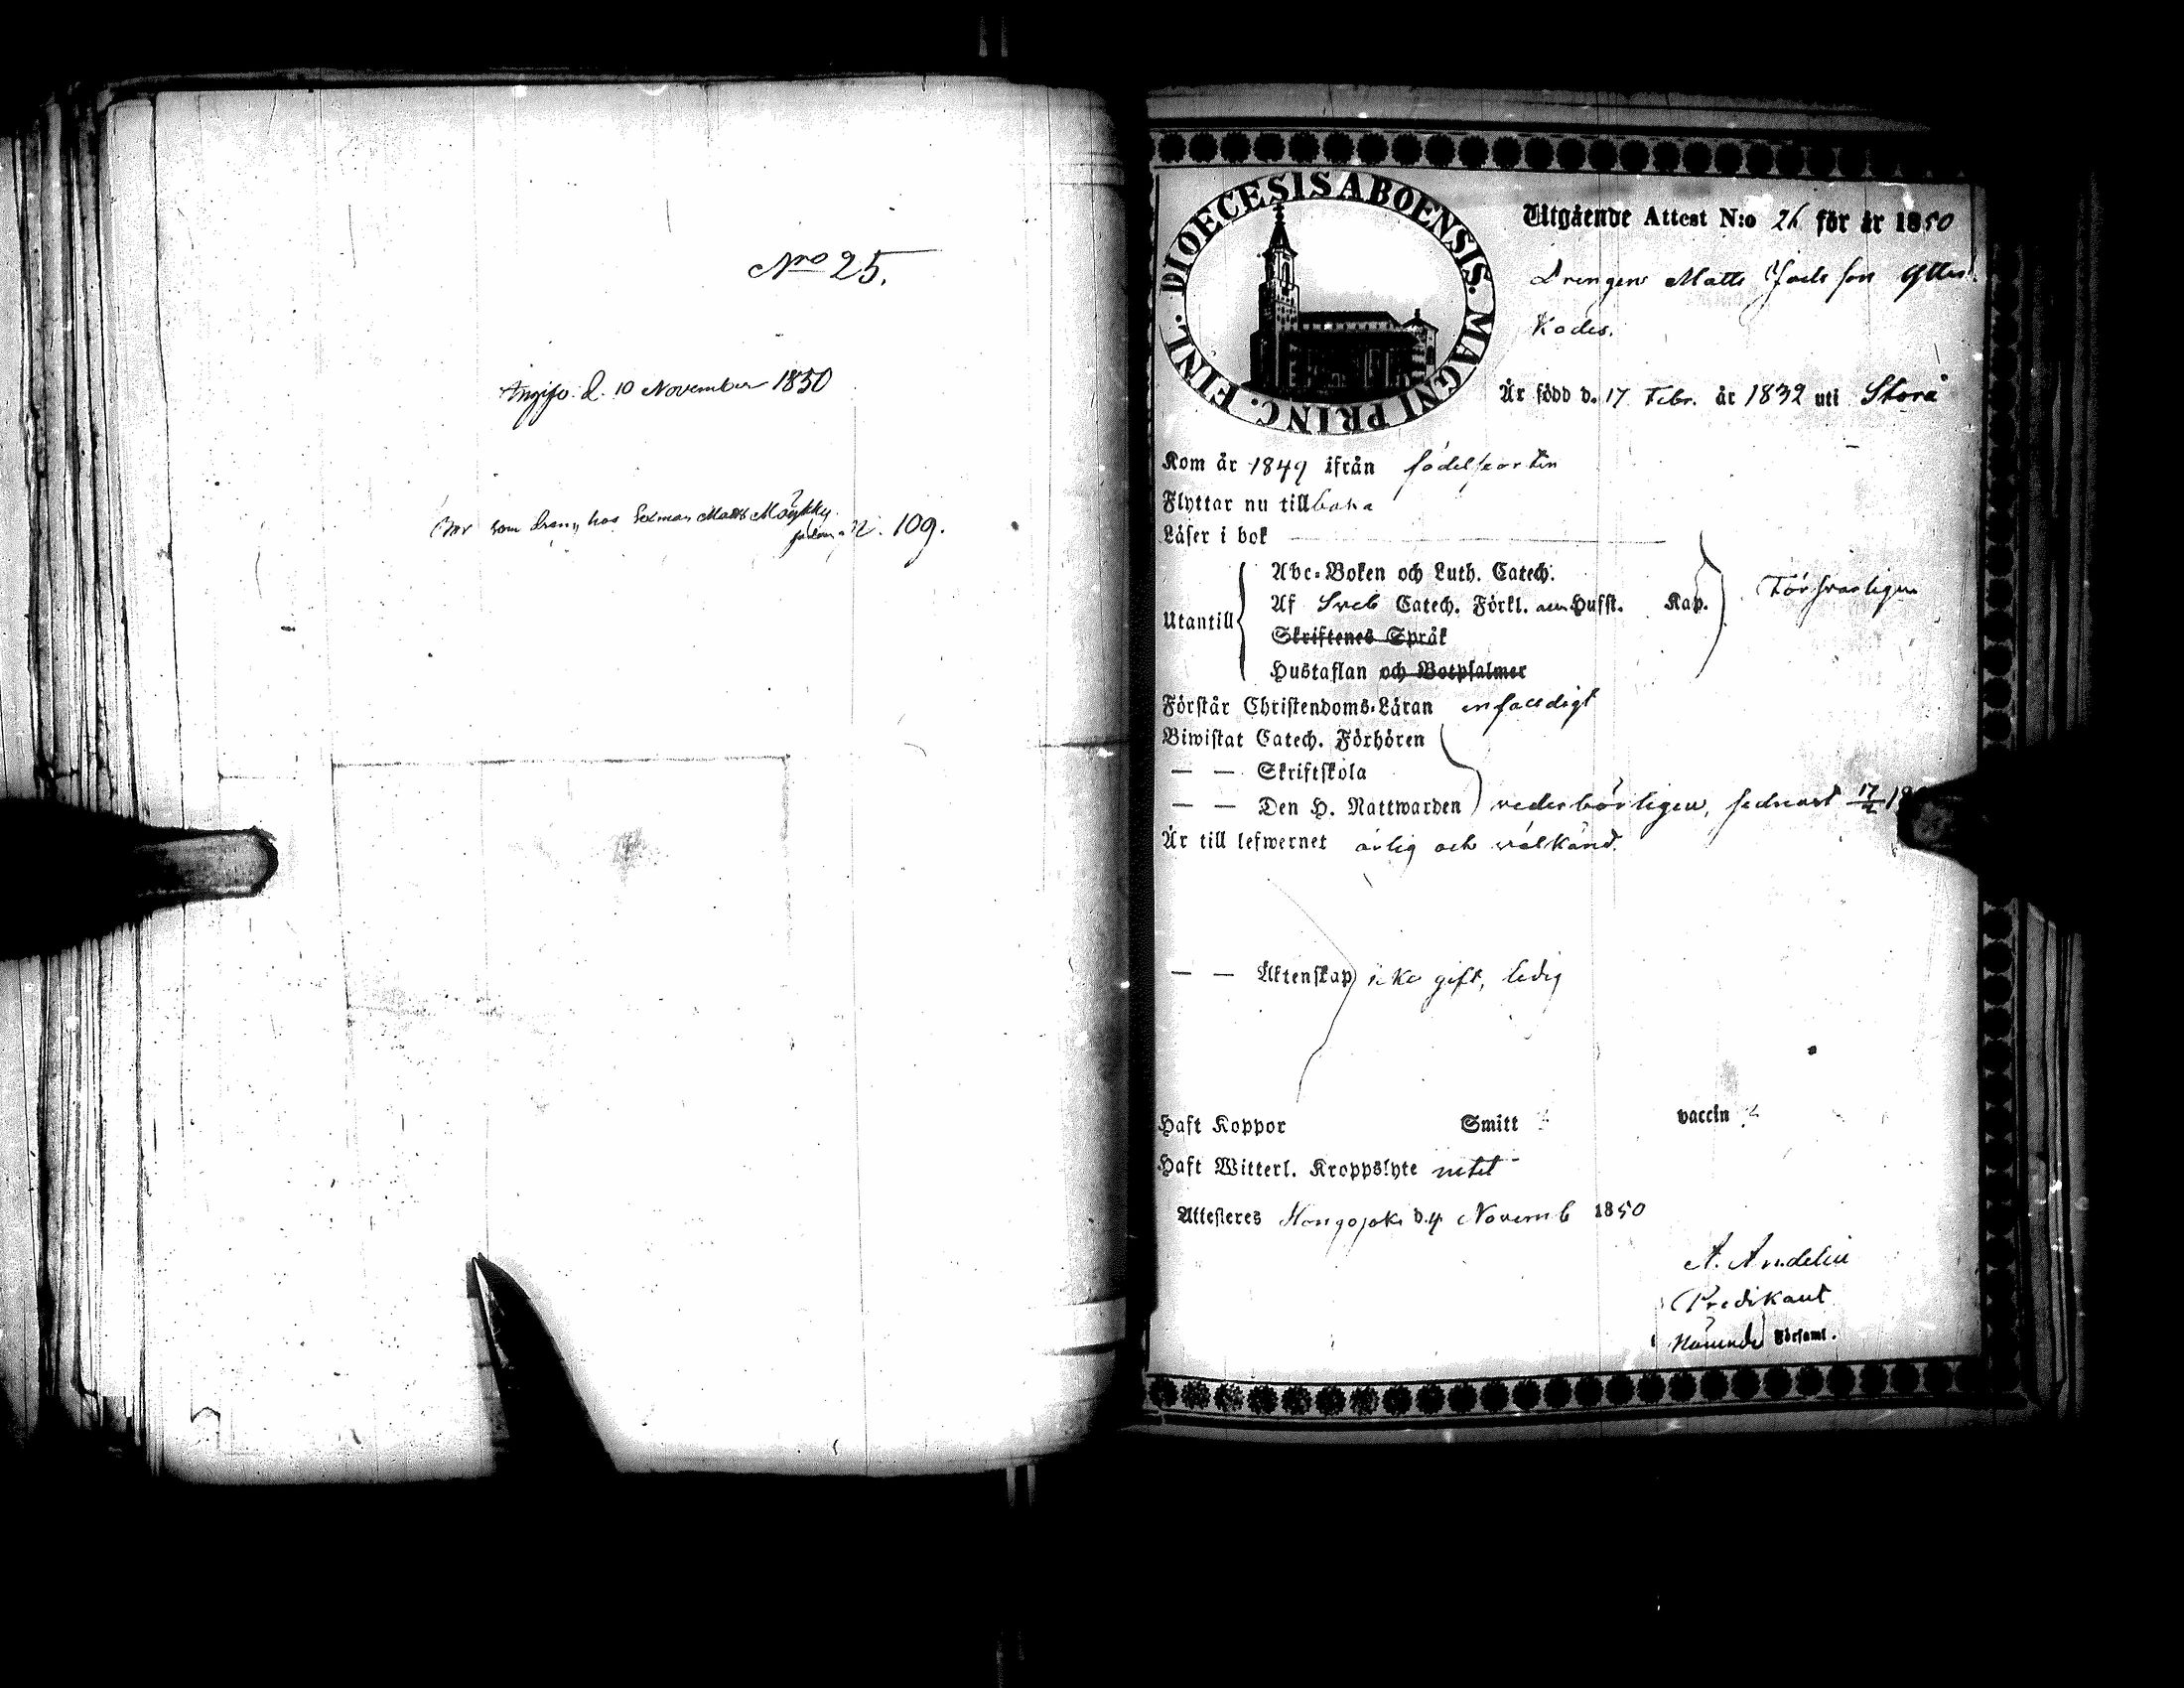 Nro 25.
Angifv. d. 10 November 1850
Bor som dräng hos Sexman Matts Möykky.
sidan 109.
DIOECESIS ABOENSIS. MAGNI PRINC. FINL.
Utgående Attest N:o 26 för år 1850
Drengen Matts Jacksson Ytter
Kodes.
Är född d. 17 Febr. år 1832 uti Storå
Kom år 1849 ifrån födelseorten
Flyttar nu tillbaka
Läser i bok
Utantill
Abc-Boken och Luth. Catech.
Af Sveb Catech. Förkl. Hufst. Kap.
Försvarligen
Skriftenes Språk
Hustaflan och Botpsalmer
Förstår Christendoms-Läran enfaldigt
Biwistat Catech. Förhören
— — Skriftskola
— — Den H. Nattwarden vederbörligen, sednast 17
Är till lefwernet ärlig och välkänd.
— — Äktenskap icke gift, ledig
Haft Koppor Smitt vaccin
Haft Witterl. Kroppslyte intet
Attesteres Hongojoki d. 4 Novemb 1850
A. Andelin
Predikant
Församl.